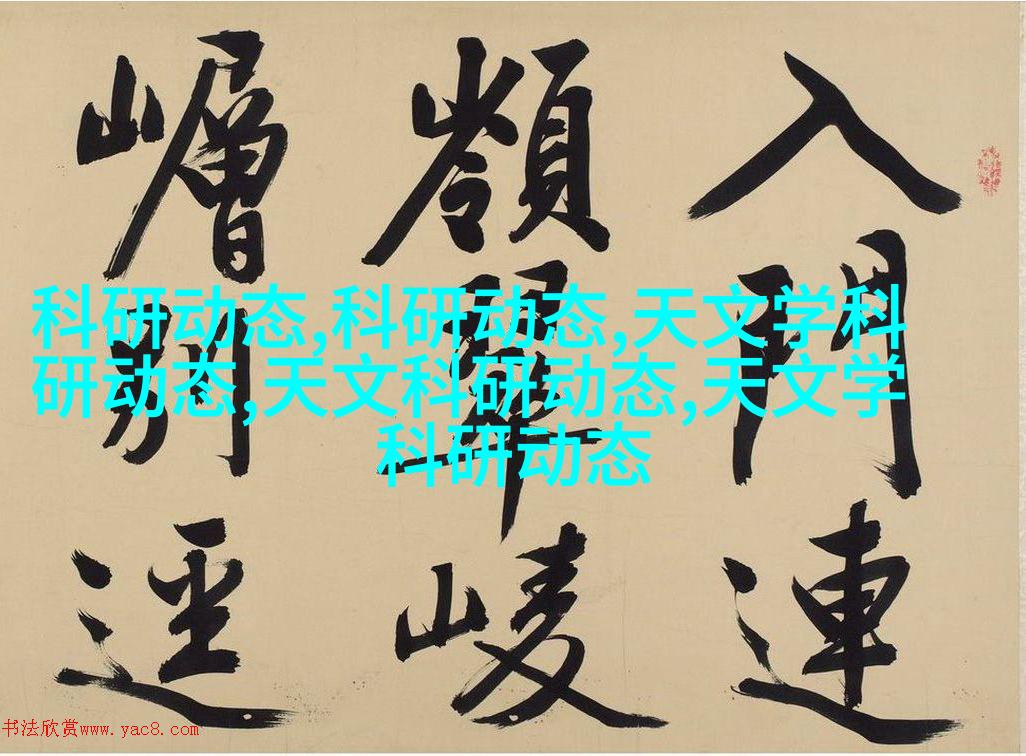 入門連
嶺翠崚
嶒別逕
科研动态,科研动态,天文学科
研动态,天文科研动态,天文学
科研动态
书法欣赏www.yac8.com